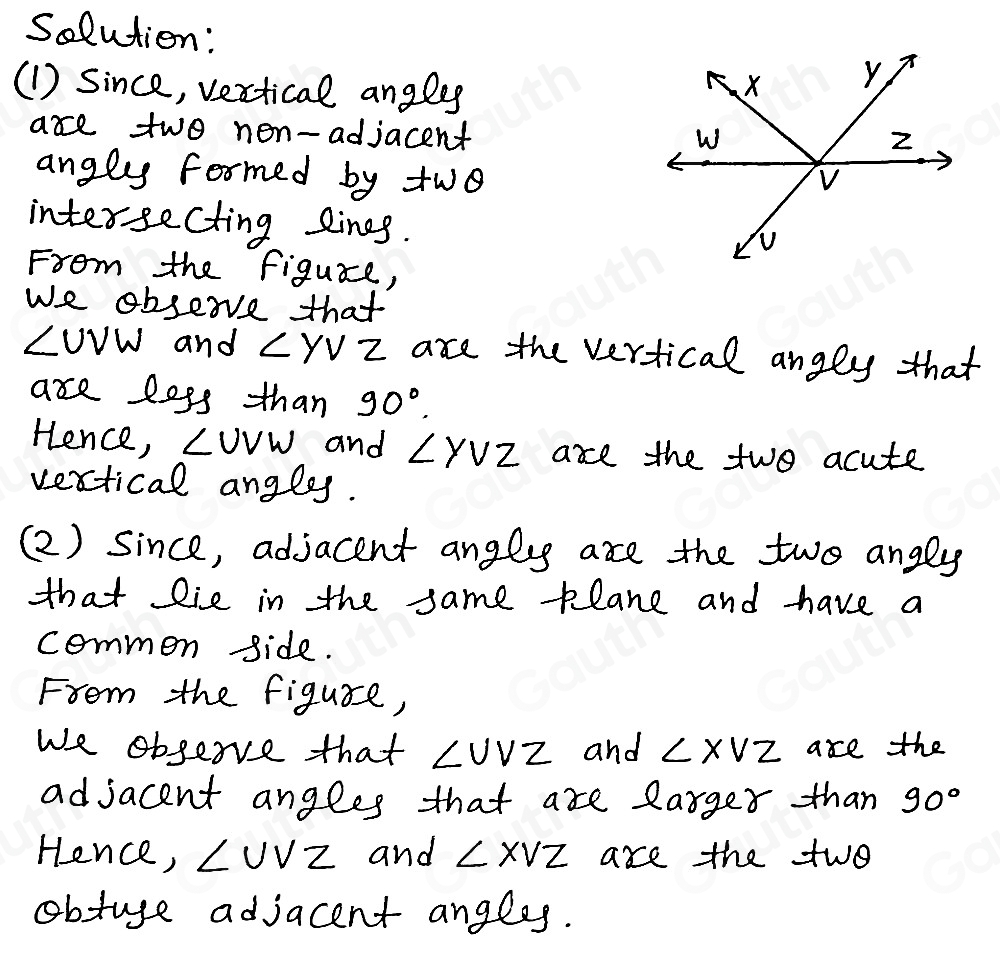 Solution:
(1) Since, vertical angles
are two non-adjacent
angles formed by two
intersecting lines.
From the figure,
We observe that
∠UVW and ∠YVZ are the vertical angles that
are less than 90°.
Hence, ∠UVW and ∠YVZ are the two acute
vertical angles.
(2) Since, adjacent angles are the two angles
that lie in the same plane and have a
common side.
From the figure,
We observe that ∠UVZ and ∠XVZ are the
adjacent angles that are larger than 90°
Hence, ∠UVZ and ∠XVZ are the two
obtuse adjacent angles.
X
Y
W
Z
V
U
Gauth